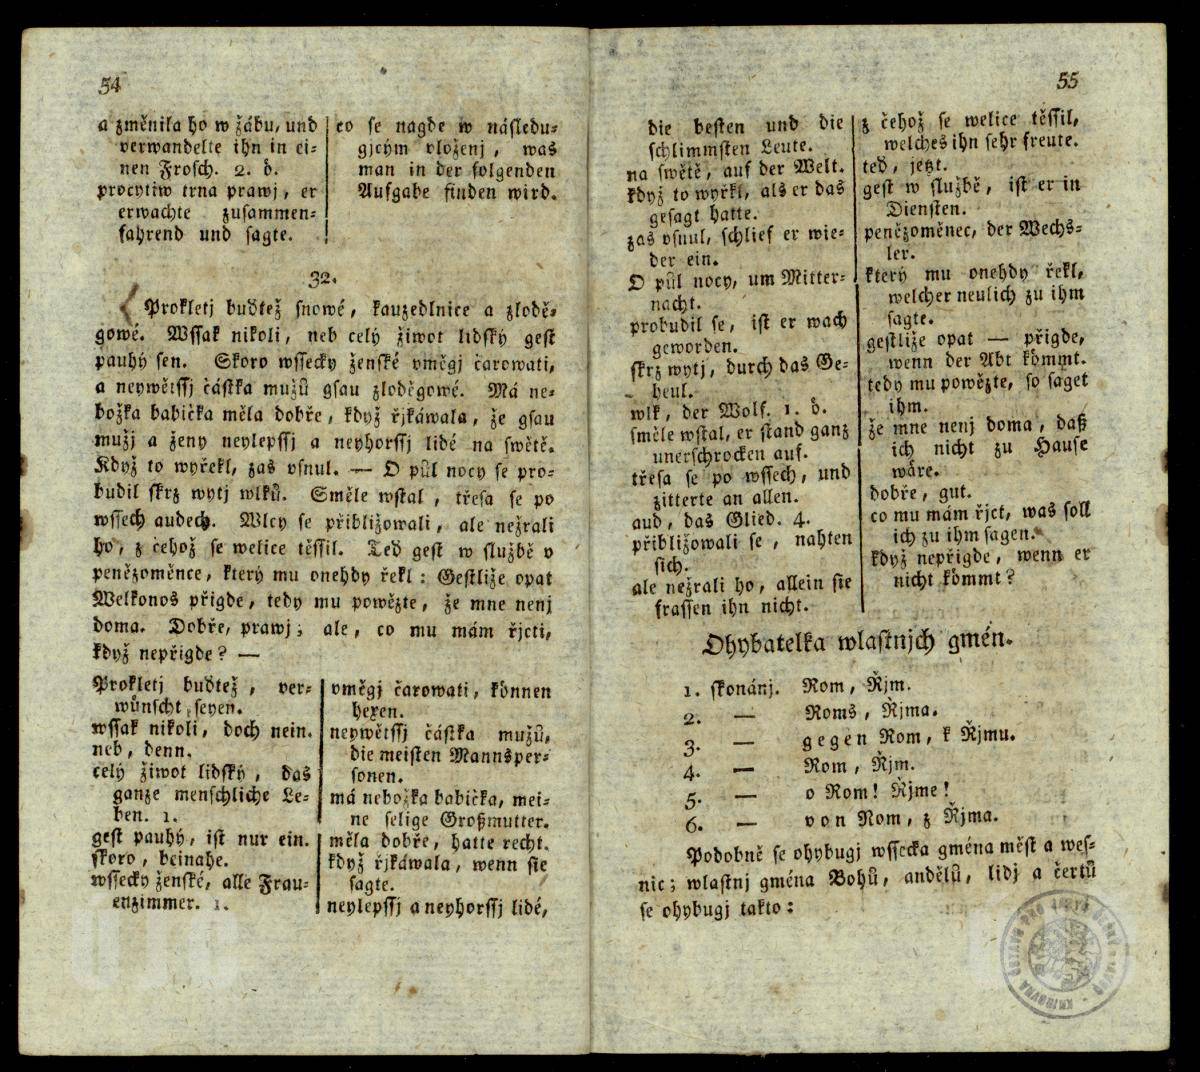 54
a změnila ho w žábu, und
verwandelte ihn in ei-
nen Frosch. 2. d.
procytiw trna prawj, er
erwachte zusammen-
fahrend und sagte.
co se nagde w následu-
gjcým vloženj, was
man in der folgenden
Aufgabe finden wird.
32.
Prokletj buďtež snowé, kauzedlnice a zlodě-
gowé. Wssak nikoli, neb celý žiwot lidský gest
pauhý sen. Skoro wssecky ženské vměgj čarowati,
a neywětssj částka mužů gsau zloděgowé. Má ne-
božka babička měla dobře, když řjkáwala, že gsau
mužj a ženy neylepssj a neyhorssj lidé na swětě.
Když to wyřekl, zas vsnul. — O půl nocy se pro-
budil skrz wytj wlků. Směle wstal, třesa se po
wssech audech. Wlcy se přibližowali, ale nežrali
ho, z čehož se welice těssil. Teď gest w službě v
penězoměnce, který mu onehdy řekl: Gestliže opat
Welkonos přigde, tedy mu powězte, že mne nenj
doma. Dobře, prawj; ale, co mu mám řjcti,
když nepřigde? —
Prokletj buďtež, ver-
wünscht seyen.
wssak nikoli, doch nein.
neb, denn.
celý žiwot lidský, das
ganze menschliche Le-
ben. 1.
gest pauhý, ist nur ein.
skoro, beinahe.
wssecky ženské, alle Frau-
enzimmer. 1.
vměgj čarowati, können
hexen.
neywětssj částka mužů,
die meisten Mannsper-
sonen.
má nebožka babička, mei-
ne selige Großmutter.
měla dobře, hatte recht.
když řjkáwala, wenn sie
sagte.
neylepssj a neyhorssj lidé,
55
die besten und die
schlimmsten Leute.
na swětě, auf der Welt.
když to wyřkl, als er das
gesagt hatte.
zas vsnul, schlief er wie-
der ein.
O půl nocy, um Mitter-
nacht.
probudil se, ist er wach
geworden.
skrz wytj, durch das Ge-
heul.
wlk, der Wolf. 1. d.
směle wstal, er stand ganz
unerschrocken auf.
třesa se po wssech, und
zitterte an allen.
aud, das Glied. 4.
přibližowali se, nahten
sich.
ale nežrali ho, allein sie
frassen ihn nicht.
z čehož se welice těssil,
welches ihn sehr freute.
teď, jetzt.
gest w službě, ist er in
Diensten.
penězoměnec, der Wechs-
ler.
který mu onehdy řekl,
welcher neulich zu ihm
sagte.
gestliže opat — přigde,
wenn der Abt kömmt.
tedy mu powězte, so saget
ihm.
že mne nenj doma, daß
ich nicht zu Hause
wäre.
dobře, gut.
co mu mám řjct, was soll
ich zu ihm sagen.
když nepřigde, wenn er
nicht kömmt?
Ohybatelka wlastnjch gmén.
1. skonánj. Rom, Řjm.
2. — Roms, Řjma.
3. — gegen Rom, k Řjmu.
4. — Rom, Řjm.
5. — o Rom! Řjme!
6. — von Rom, z Řjma.
Podobně se ohybugj wssecka gména měst a wes-
nic; wlastnj gména Bohů, andělů, lidj a čertů
se ohybugj takto: